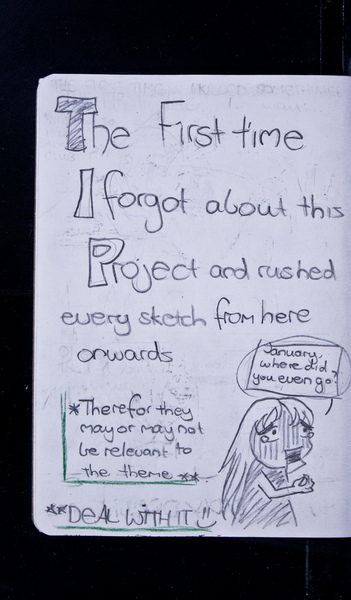 The First time
I forgot about this
Project and rushed
every sketch from here
onwards
January,
where did
you even go?
*Therefor they
may or may not
be relevant to
the theme **
**DEAL WITH IT